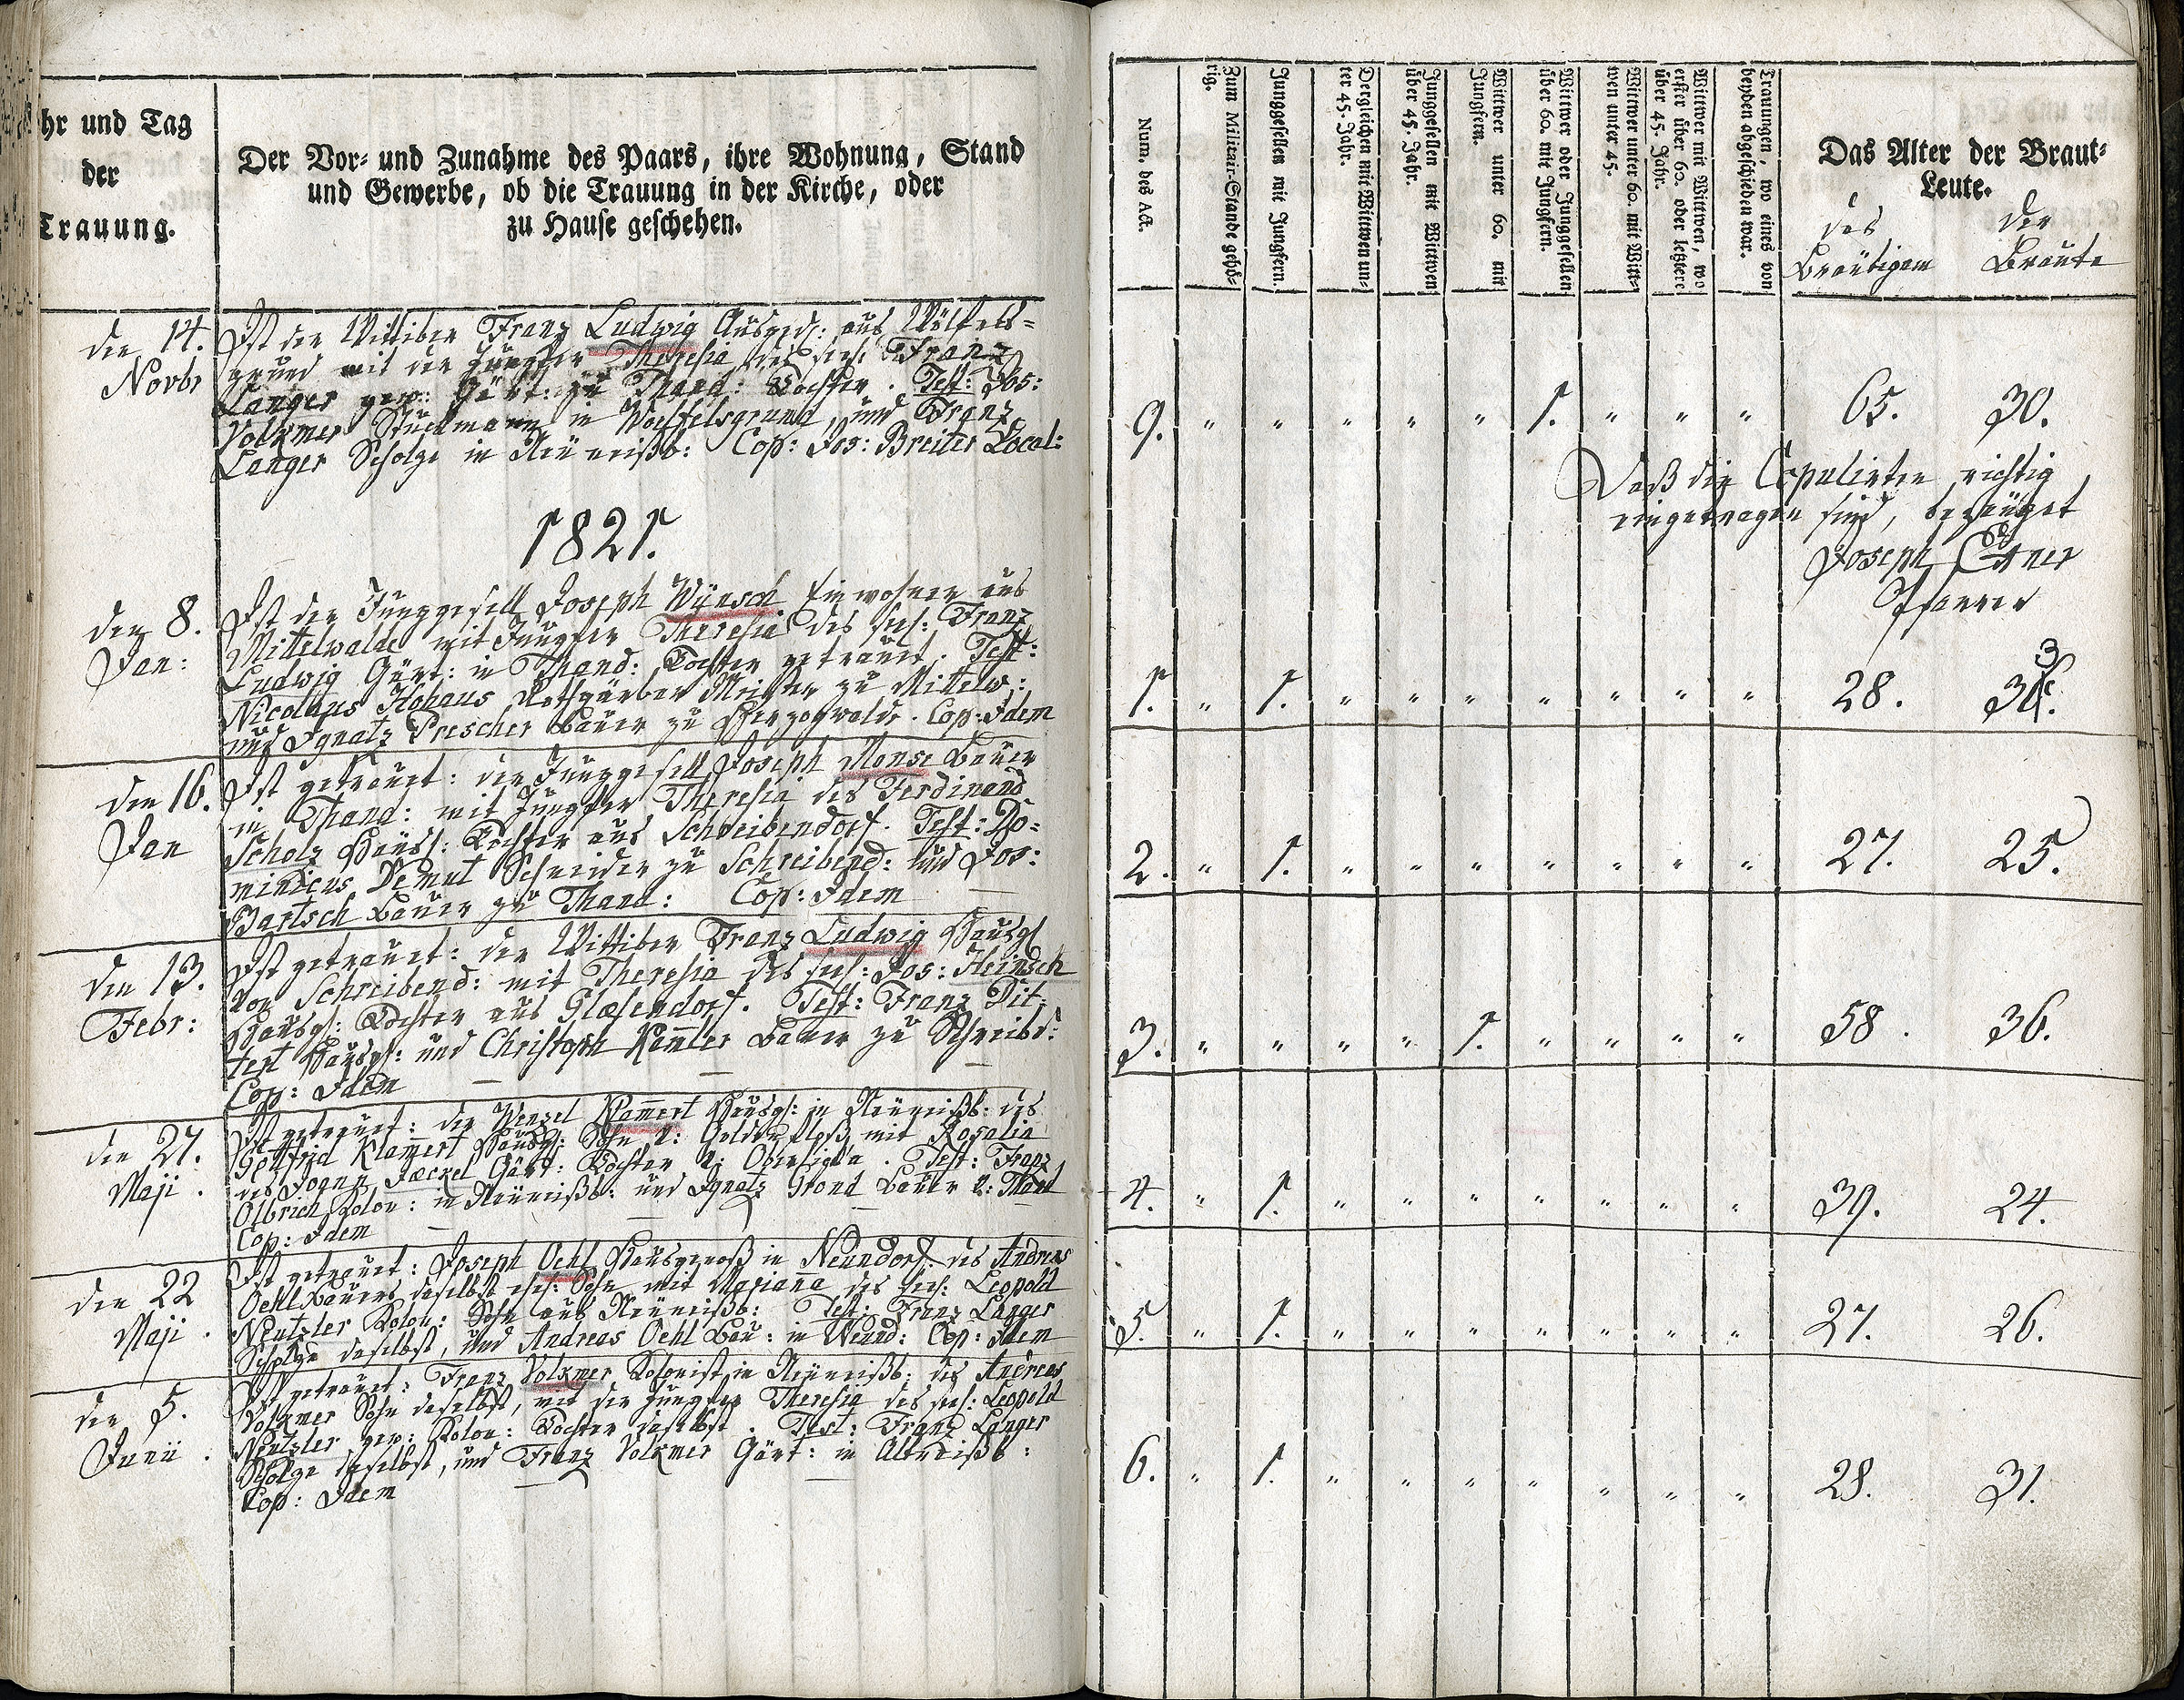 hr und Tag
der
Trauung.
Der Vor- und Zunahme des Paars, ihre Wohnung, Stand
und Gewerbe, ob die Trauung in der Kirche, oder
zu Hause geschehen.
den 14.
Novbr
Ist der Wittiber Franz Ludwig Ausged: aus Wölfels-
grund mit der Jungfer Theresia des seel: Franz
Langer gew: Gärt: zu Thand: Tochter. Test: Jos:
Volkmer Stuckmann in Woelfelsgrund, und Franz
Langer Scholze in Neüweißb: Cop: Jos: Breiter Local:
1821.
den 8.
Jan:
Ist der Junggesell Joseph Wünsch Einwohner aus
Mittelwalde mit Jungfer Theresia des seel: Franz
Ludwig Gärt: in Thand: Tochter getraut. Test:
Nicolaus Hohaus Rothgärber Meister zu Mittelw:
und Ignatz Prescher Bauer zu Herzogwalde. Cop: Idem
den 16.
Jan
Ist getrauet: der Junggesell Joseph Monse Bauer
in Thand: mit Jungfer Theresia des Ferdinand
Scholz Häusl: Tochter aus Schreibendorf. Test: Do-
minicus Demut Schneider zu Schreibend: und Jos:
Bartsch Bauer zu Thand: Cop: Idem
den 13.
Febr:
Ist getrauet: der Wittiber Franz Ludwig Hausgl
von Schreibend: mit Theresia des seel: Jos: Heinsch
Hausgl: Tochter aus Glasendorf. Test: Franz Dit-
tert Hausgl: und Christoph Kam̅ler Bauer zu Schreibd:
Cop: Idem
den 27.
Maji.
Ist getrauet: der Wenzel Klam̅ert Hausgl: in Neüweißb: des
Gottfrid Klam̅ert Hausgl: Sohn v: mit Rosalia
des Joann Jaeckel Gärt: Tochter v: Test: Franz
Olbrich Kolon: in Neüweißb: und Ignatz Grond Bauer v: Thand
Cop: Idem
den 22
Maji.
Ist getrauet: Joseph Oehl Hausgenoß in Neundorf: des Andreas
Oehl Bauers daselbst ehel: Sohn mit Marian̅a des seel: Leopold
Neutzler Kolon: Sohn aus Neüweißb: Test: Franz Langer
Scholze daselbst, und Andreas Oehl Bau: in Neund: Cop: Idem
den 5.
Junii.
Ist getrauet: Franz Volkmer Kolonist in Neüweißb: des Andreas
Volkmer Sohn daselbst, mit der Jungfer Theresia des seel: Leopold
Neutzler gew: Kolon: Tochter daselbst. Test: Franz Langer
Scholze daselbst, und Franz Volkmer Gärt: in Altweißb:
Cop: Idem
Num. des Act.
Zum Militair-Stande gehö-
rig.
Junggesellen mit Jungfern.
Dergleichen mit Wittwen un-
ter 45. Jahr.
Junggesellen mit Wittwen
über 45. Jahr.
Wittwer unter 60. mit
Jungfern.
Wittwer oder Junggesellen
über 60. mit Jungfern.
Wittwer unter 60. mit Witt-
wen unter 45.
Wittwer mit Wittwen, wo
erster über 60. oder letztere
über 45. Jahr.
Trauungen, wo eines von
beyden abgeschieden war.
Das Alter der Braut-
Leute.
des der
Bräutigam Braute
9. " " " " " 1. " " " 65. 30.
Daß die Copulirten richtig
eingetragen sind, bezeuget
Joseph Extner
Pfarrer
1. " 1. " " " " " " " 28. 3
2. " 1. " " " " " " " 27. 25.
3. " " " " 1. " " " " 58. 36.
4. " 1. " " " " " " " 39. 24.
5. " 1. " " " " " " " 27. 26.
6. " 1. " " " " " " " 28. 31.